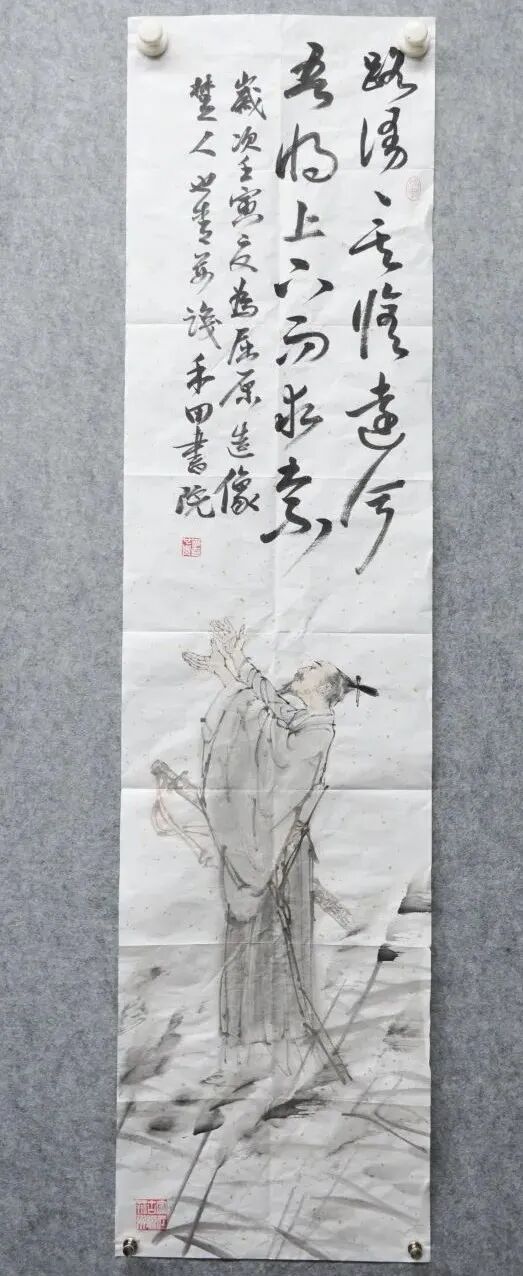 路漫々其脩遠兮
吾将上下而求索
歲次壬寅夏為屈原造像
楚人識禾田書院